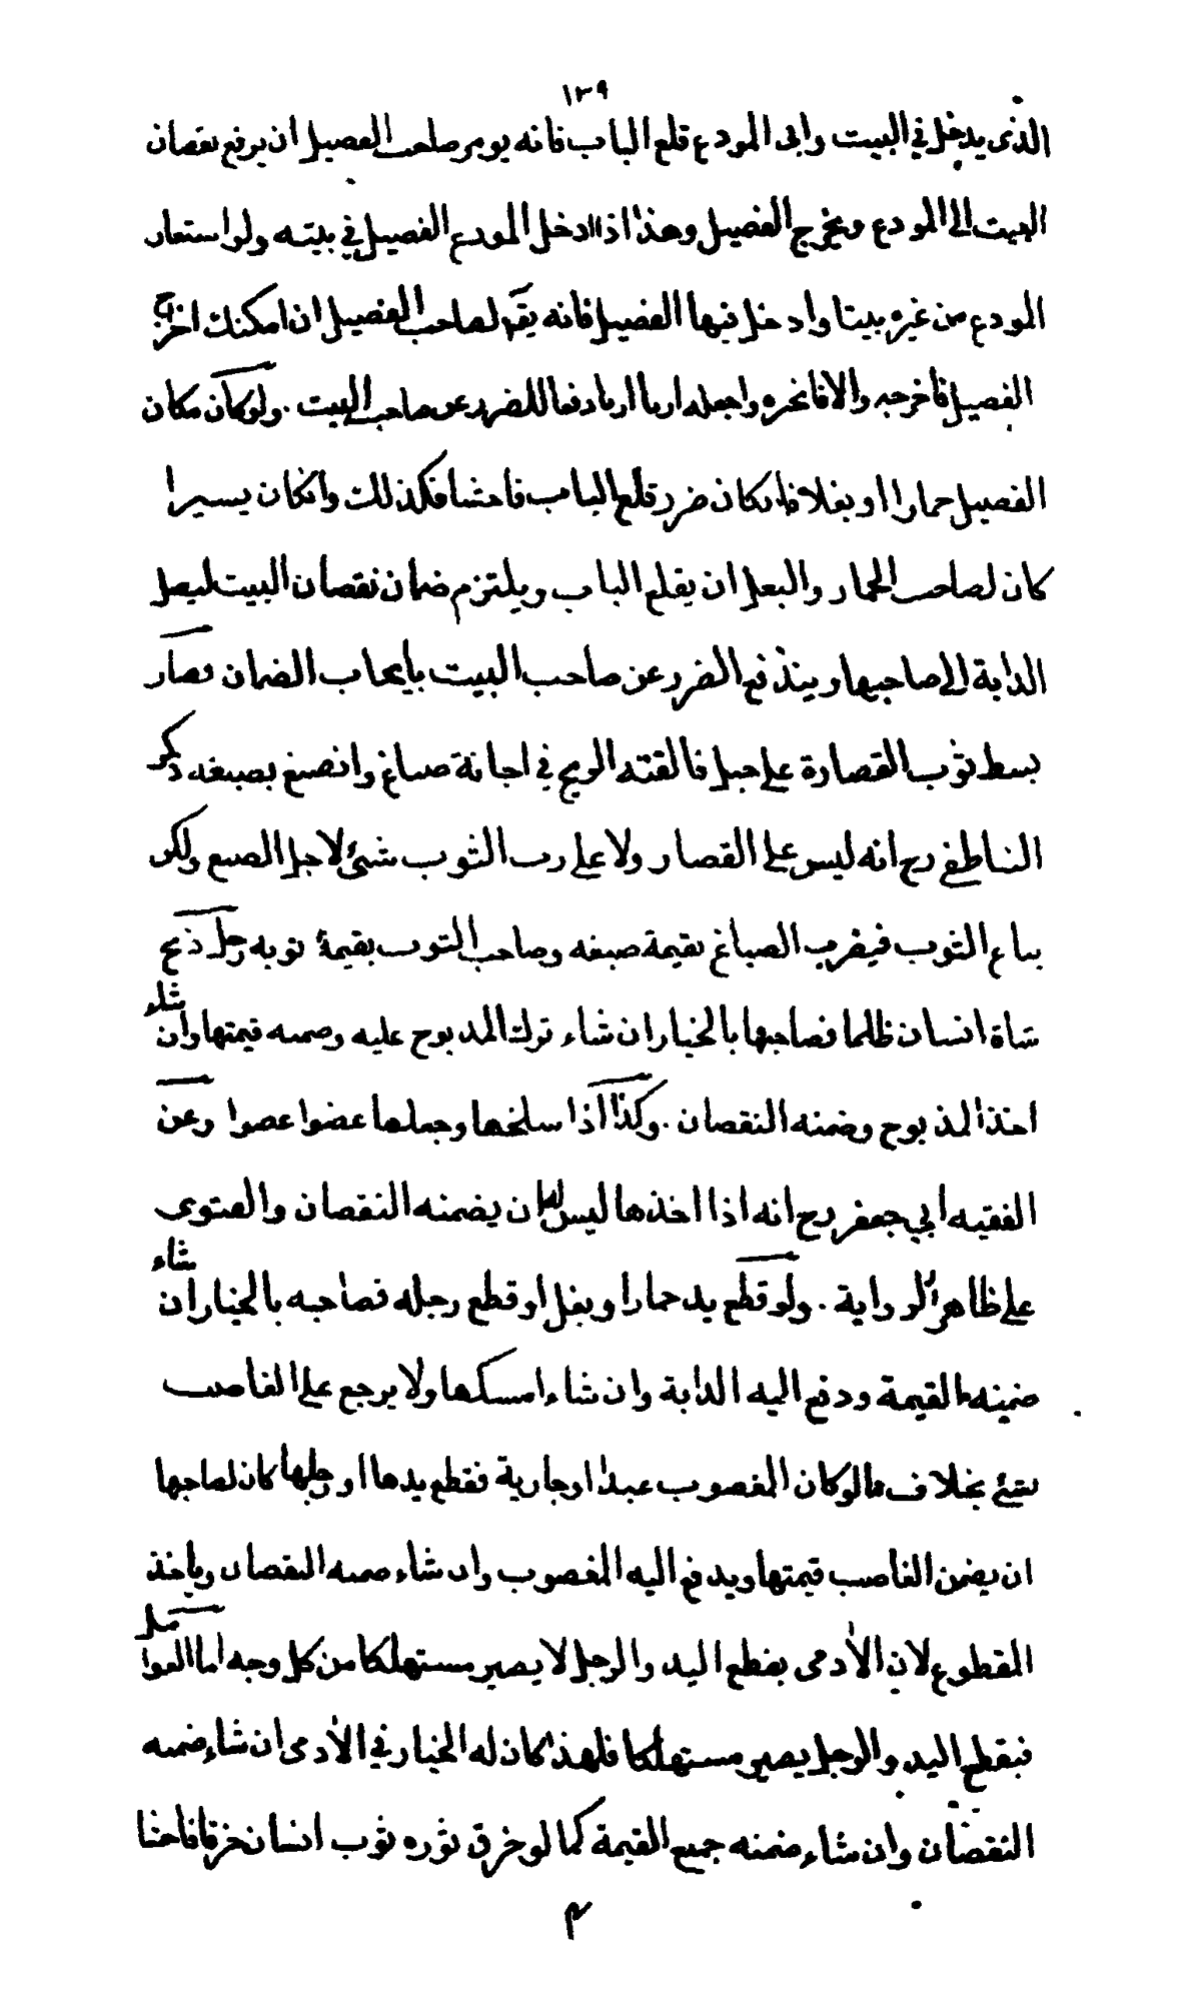 ١٣٩
الذى يدخل في البيت وابى المودع قلع الباب فانه يومر صاحب الفصيل ان يرفع نقصان
البيت الى المودع ويخرج الفصيل وهذا اذا ادخل المودع الفصيل في بيته ولو استعار
المودع من غيره بيتا وادخل فيها الفصيل فانه يقر لصاحب الفصيل ان امكنك اخراج
الفصيل فاخرجه والا فانحره واجعله اربا اربا دفعا للضرر عن صاحب البيت . ولو كان مكان
الفصيل حمارا او بغلا فان كان ضرر قلع الباب فاحشا فكذلك وان كان يسيرا
كان لصاحب الحمار والبغل ان يقلع الباب ويلتزم ضمان نقصان البيت ليصل
الدابة الى صاحبها ويندفع الضرر عن صاحب البيت بايجاب الضمان قصار
بسط ثوب القصارة على حبل فالقته الريح في اجانة صباغ وانصبغ بصبغه ذكر
الناطفى رح انه ليس على القصار ولا على رب الثوب شئ لاجل الصبغ ولكن
يباع الثوب فيضرب الصباغ بقيمة صبغه وصاحب الثوب بقيمة ثوبه رجل ذبح
شاة انسان ظلما فصاحبها بالخيار ان شاء ترك المذبوح عليه وضمنه قيمتها وان شاء
اخذ المذبوح وضمنه النقصان . وكذا اذا سلخها وجعلها عضوا عضوا وعن
الفقيه ابي جعفر رح انه اذا اخذها ليس له ان يضمنه النقصان والفتوى
على ظاهر الرواية . ولو قطع يد حمار او بغل او قطع رجله فصاحبه بالخيار ان شاء
ضمنه القيمة ودفع اليه الدابة وان شاء امسكها ولا يرجع على الغاصب
بشئ بخلاف ما لو كان المغصوب عبدا او جارية فقطع يدها او رجلها كان لصاحبها
ان يضمن الغاصب قيمتها ويدفع اليه المغصوب وان شاء ضمنه النقصان وياخذ
المقطوع لان الأدمى بقطع اليد والرجل لا يصير مستهلكا من كل وجه اما العوامل
فبقطع اليد والرجل يصير مستهلكا فلهذا كان له الخيار في الأدمى ان شاء ضمنه
النقصان وان شاء ضمنه جميع القيمة كما لو خرق ثوب انسان خرقا فاحشا